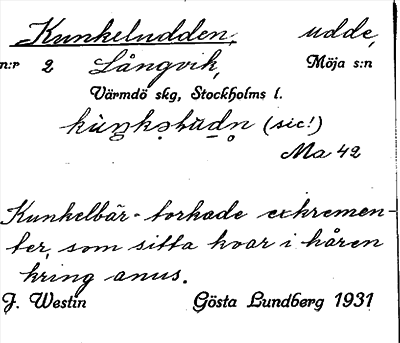 Kunkeludden, udde,
n:r 2 Långvik, Möja s:n
Värmdö skg, Stockholms l.
(sic!)
Ma 42
Kunkelbär = torkade exkremen-
ter, som sitta kvar i håren
kring anus.
J. Westin Gösta Lundberg 1931